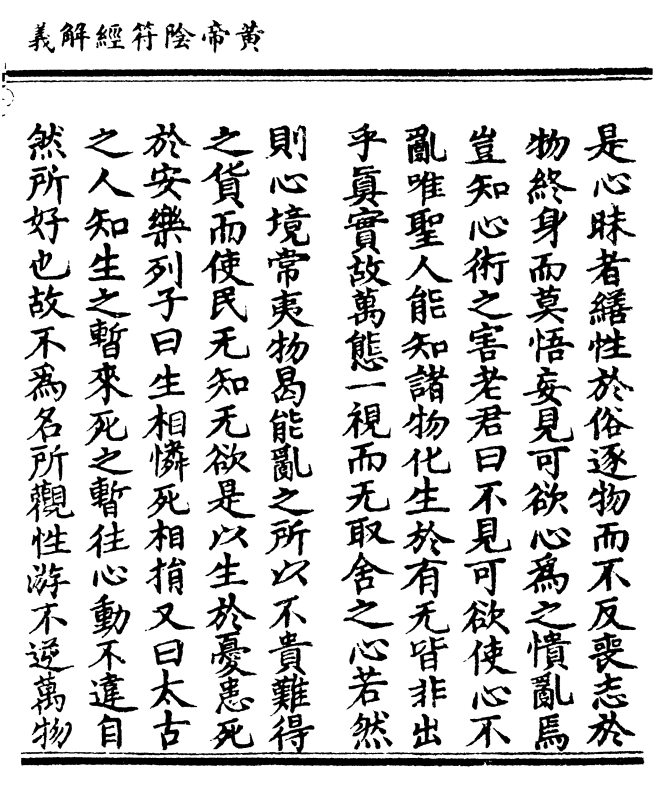 黃帝陰符經解義
是心昧者繕性於俗逐物而不反喪志於
物終身而莫悟妄見可欲心爲之憒亂焉
豈知心術之害老君曰不見可欲使心不
亂唯聖人能知諸物化生於有无皆非出
乎眞實故萬態一視而无取舍之心若然
則心境常夷物曷能亂之所以不貴難得
之貨而使民无知无欲是以生於憂恚死
於安樂列子曰生相憐死相捐又曰太古
之人知生之暫來死之暫往心動不違自
然所好也故不爲名所觀性游不逆萬物